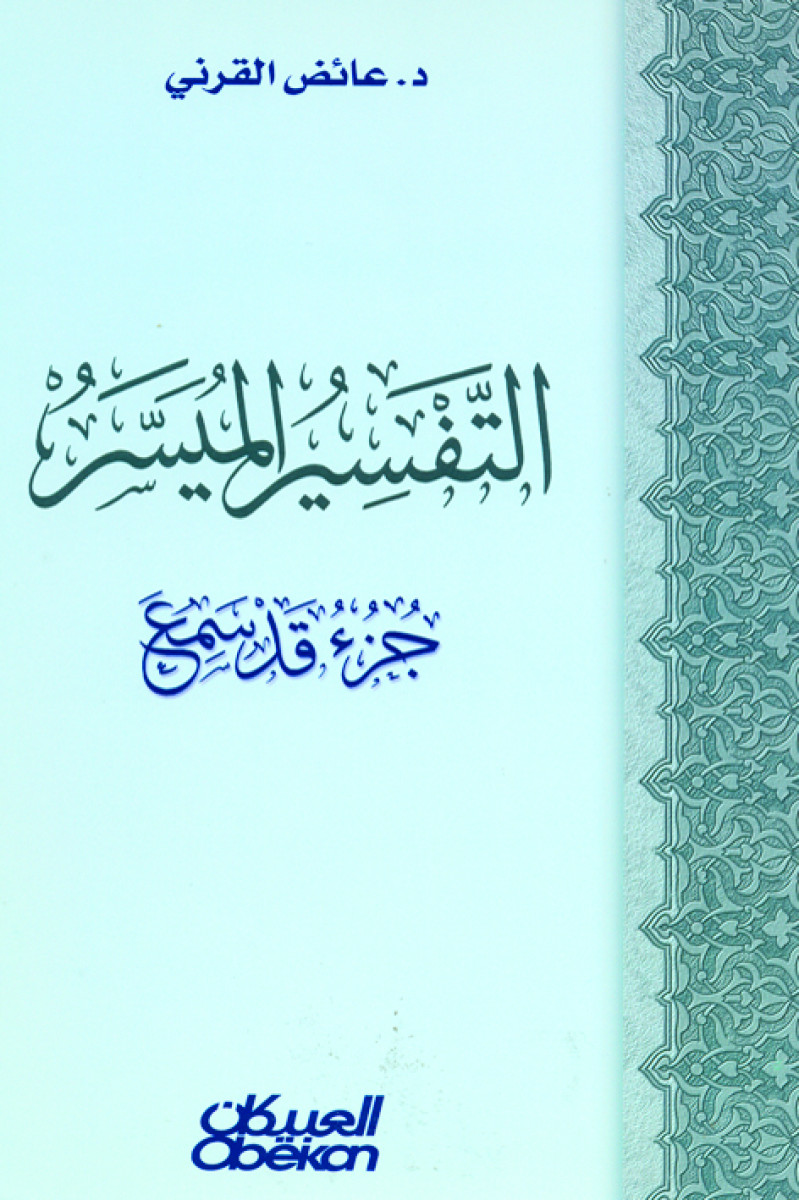 د. عائض القرني
التَّفْسِيرُ المُيَسَّرُ
جُزْءُ قَدْ سَمِعَ
العبيكان
Obëkan